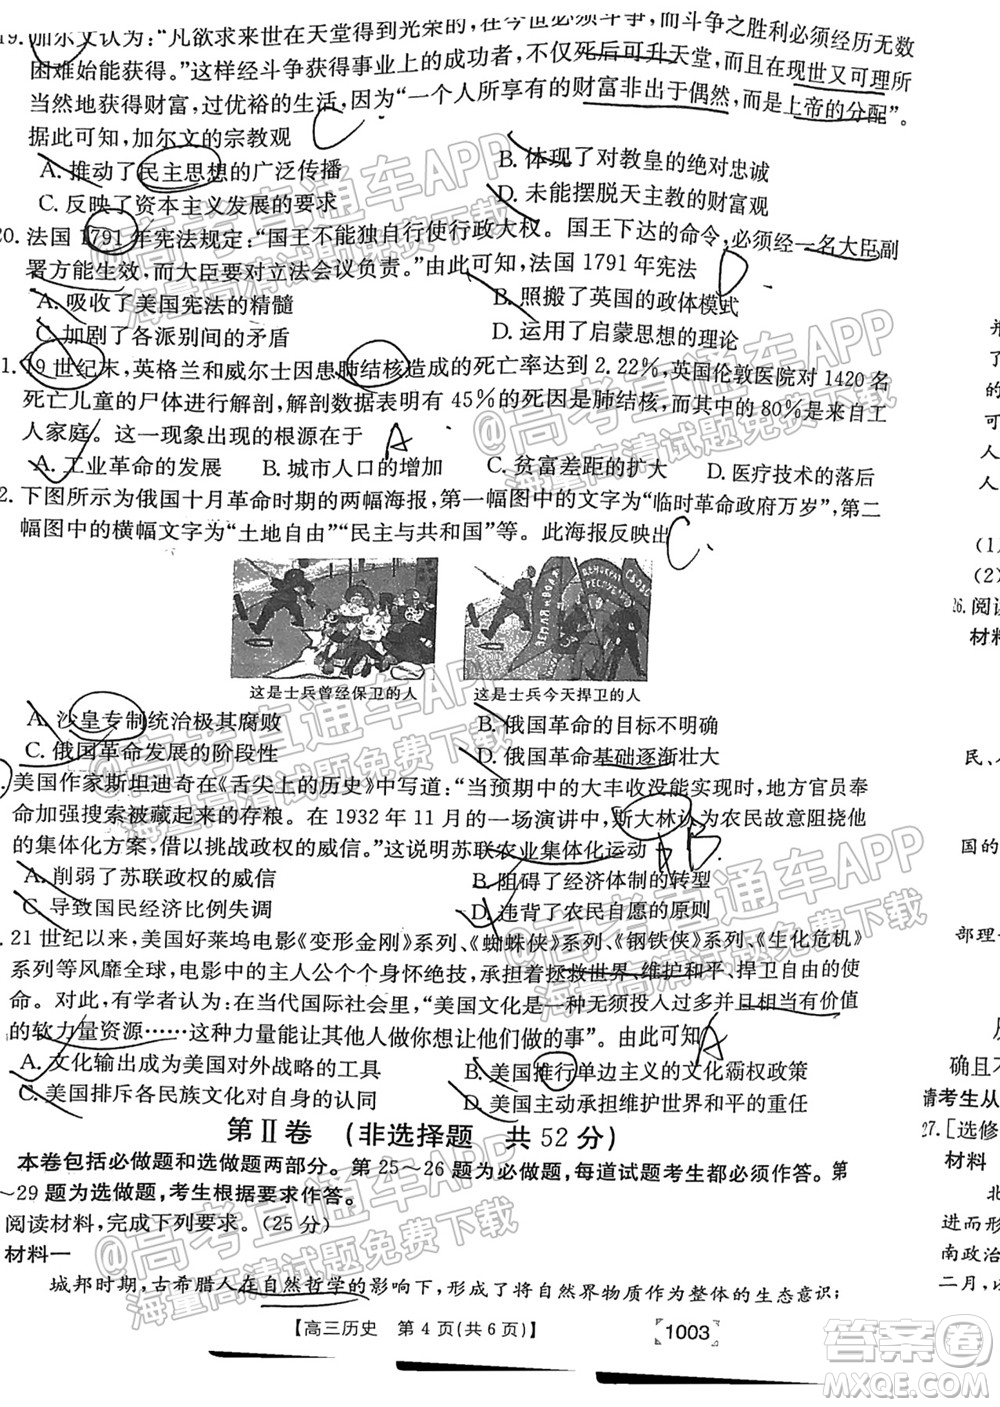 19. 加尔文认为：“凡欲求来世在天堂得到光荣的，在今世必须斗争，而斗争之胜利必须经历无数
困难始能获得。”这样经斗争获得事业上的成功者，不仅死后可升天堂，而且在现世又可理所
当然地获得财富，过优裕的生活，因为“一个人所享有的财富非出于偶然，而是上帝的分配”。
据此可知，加尔文的宗教观
A. 推动了民主思想的广泛传播
B. 体现了对教皇的绝对忠诚
C. 反映了资本主义发展的要求
D. 未能摆脱天主教的财富观
20. 法国 1791 年宪法规定：“国王不能独自行使行政大权。国王下达的命令，必须经一名大臣副
署方能生效，而大臣要对立法会议负责。”由此可知，法国 1791 年宪法
D
A. 吸收了美国宪法的精髓
B. 照搬了英国的政体模式
C. 加剧了各派别间的矛盾
D. 运用了启蒙思想的理论
1. 19 世纪末，英格兰和威尔士因患肺结核造成的死亡率达到 2.22%，英国伦敦医院对 1420 名
死亡儿童的尸体进行解剖，解剖数据表明有 45%的死因是肺结核，而其中的 80%是来自工
人家庭。这一现象出现的根源在于 A
A. 工业革命的发展 B. 城市人口的增加 C. 贫富差距的扩大 D. 医疗技术的落后
2. 下图所示为俄国十月革命时期的两幅海报，第一幅图中的文字为“临时革命政府万岁”，第二
幅图中的横幅文字为“土地自由”“民主与共和国”等。此海报反映出 C.
ЗЕМЛЯ и ВОЛЯ
РЕСПУБЛИК
这是士兵曾经保卫的人
这是士兵今天捍卫的人
A. 沙皇专制统治极其腐败
B. 俄国革命的目标不明确
C. 俄国革命发展的阶段性
D. 俄国革命基础逐渐壮大
. 美国作家斯坦迪奇在《舌尖上的历史》中写道：“当预期中的大丰收没能实现时，地方官员奉
命加强搜索被藏起来的存粮。在 1932 年 11 月的一场演讲中，斯大林认为农民故意阻挠他
的集体化方案，借以挑战政权的威信。”这说明苏联农业集体化运动 B
A. 削弱了苏联政权的威信
B. 阻碍了经济体制的转型
C. 导致国民经济比例失调
D. 违背了农民自愿的原则
. 21 世纪以来，美国好莱坞电影《变形金刚》系列、《蜘蛛侠》系列、《钢铁侠》系列、《生化危机》
系列等风靡全球，电影中的主人公个个身怀绝技，承担着拯救世界、维护和平、捍卫自由的使
命。对此，有学者认为：在当代国际社会里，“美国文化是一种无须投入过多并且相当有价值
的软力量资源……这种力量能让其他人做你想让他们做的事”。由此可知 A
A. 文化输出成为美国对外战略的工具
B. 美国推行单边主义的文化霸权政策
C. 美国排斥各民族文化对自身的认同
D. 美国主动承担了维护世界和平的重任
第 Ⅱ 卷 （非选择题 共 52 分）
本卷包括必做题和选做题两部分。第 25～26 题为必做题，每道试题考生都必须作答。第
～29 题为选做题，考生根据要求作答。
阅读材料，完成下列要求。（25 分）
材料一
城邦时期，古希腊人在自然哲学的影响下，形成了将自然界物质作为整体的生态意识；
【高三历史 第 4 页(共 6 页)】
1003
了
的
可
人
(1)
(2)
26. 阅读
材料
民、
国的
部理
确且不
请考生从
27. [选修
材料
北
进而形
南政治
二月，
@高考直通车APP
海量高清试题免费下载
@高考直通车APP
海量高清试题免费下载
@高考直通车APP
海量高清试题免费下载
@高考直通车APP
海量高清试题免费下载
@高考直通车APP
海量高清试题免费下载
答案卷
MXQE.COM